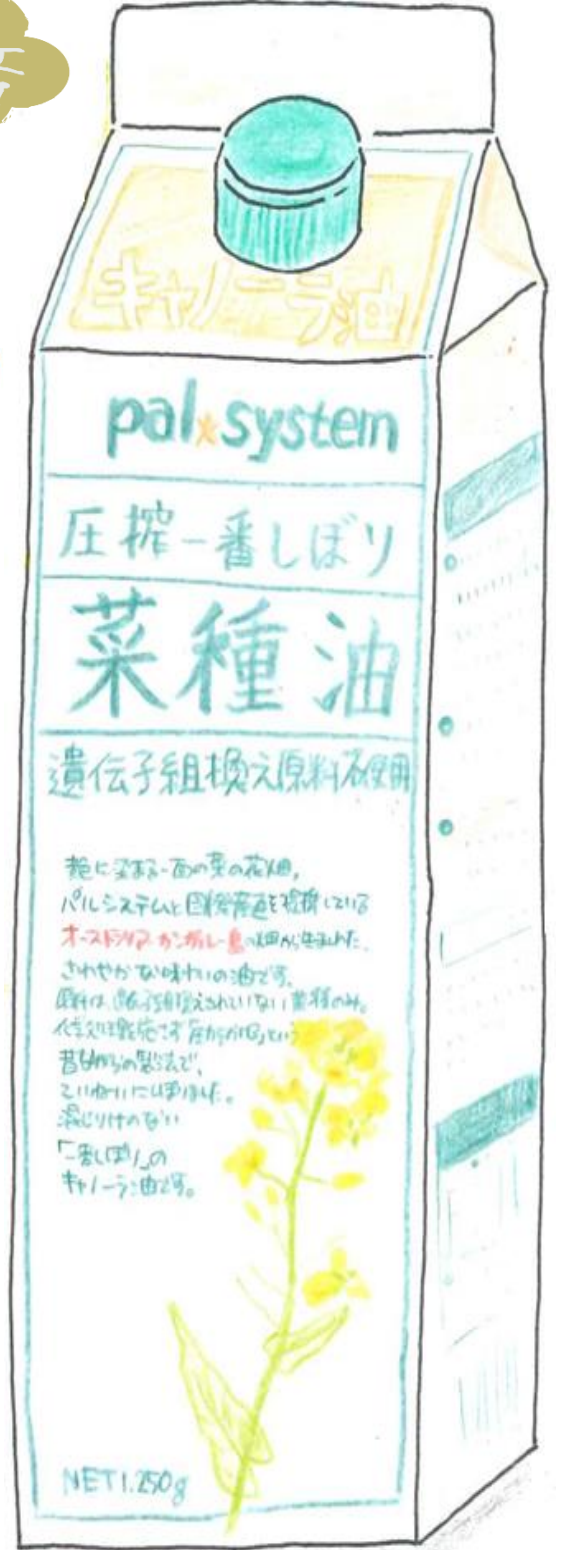 キャノーラ油
pal*system
圧搾一番しぼり
菜種油
遺伝子組換え原料不使用
黄色に染まる一面の菜の花畑。
パルシステムと
オーストラリア・カンガルー島の畑から生まれた、
さわやかな味わいの油です。
原料は、遺伝子組換えされていない菜種のみ。
という
昔ながらの製法で、
ていねいにしぼりました。
混じりけのない
「一番しぼり」の
キャノーラ油です。
NET1.250g